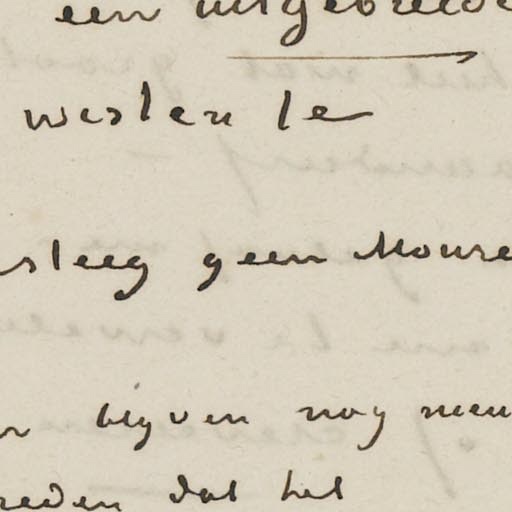 een uitgebreide
westen te
steeg geen Moure
blyven nog nieu
reden dat het